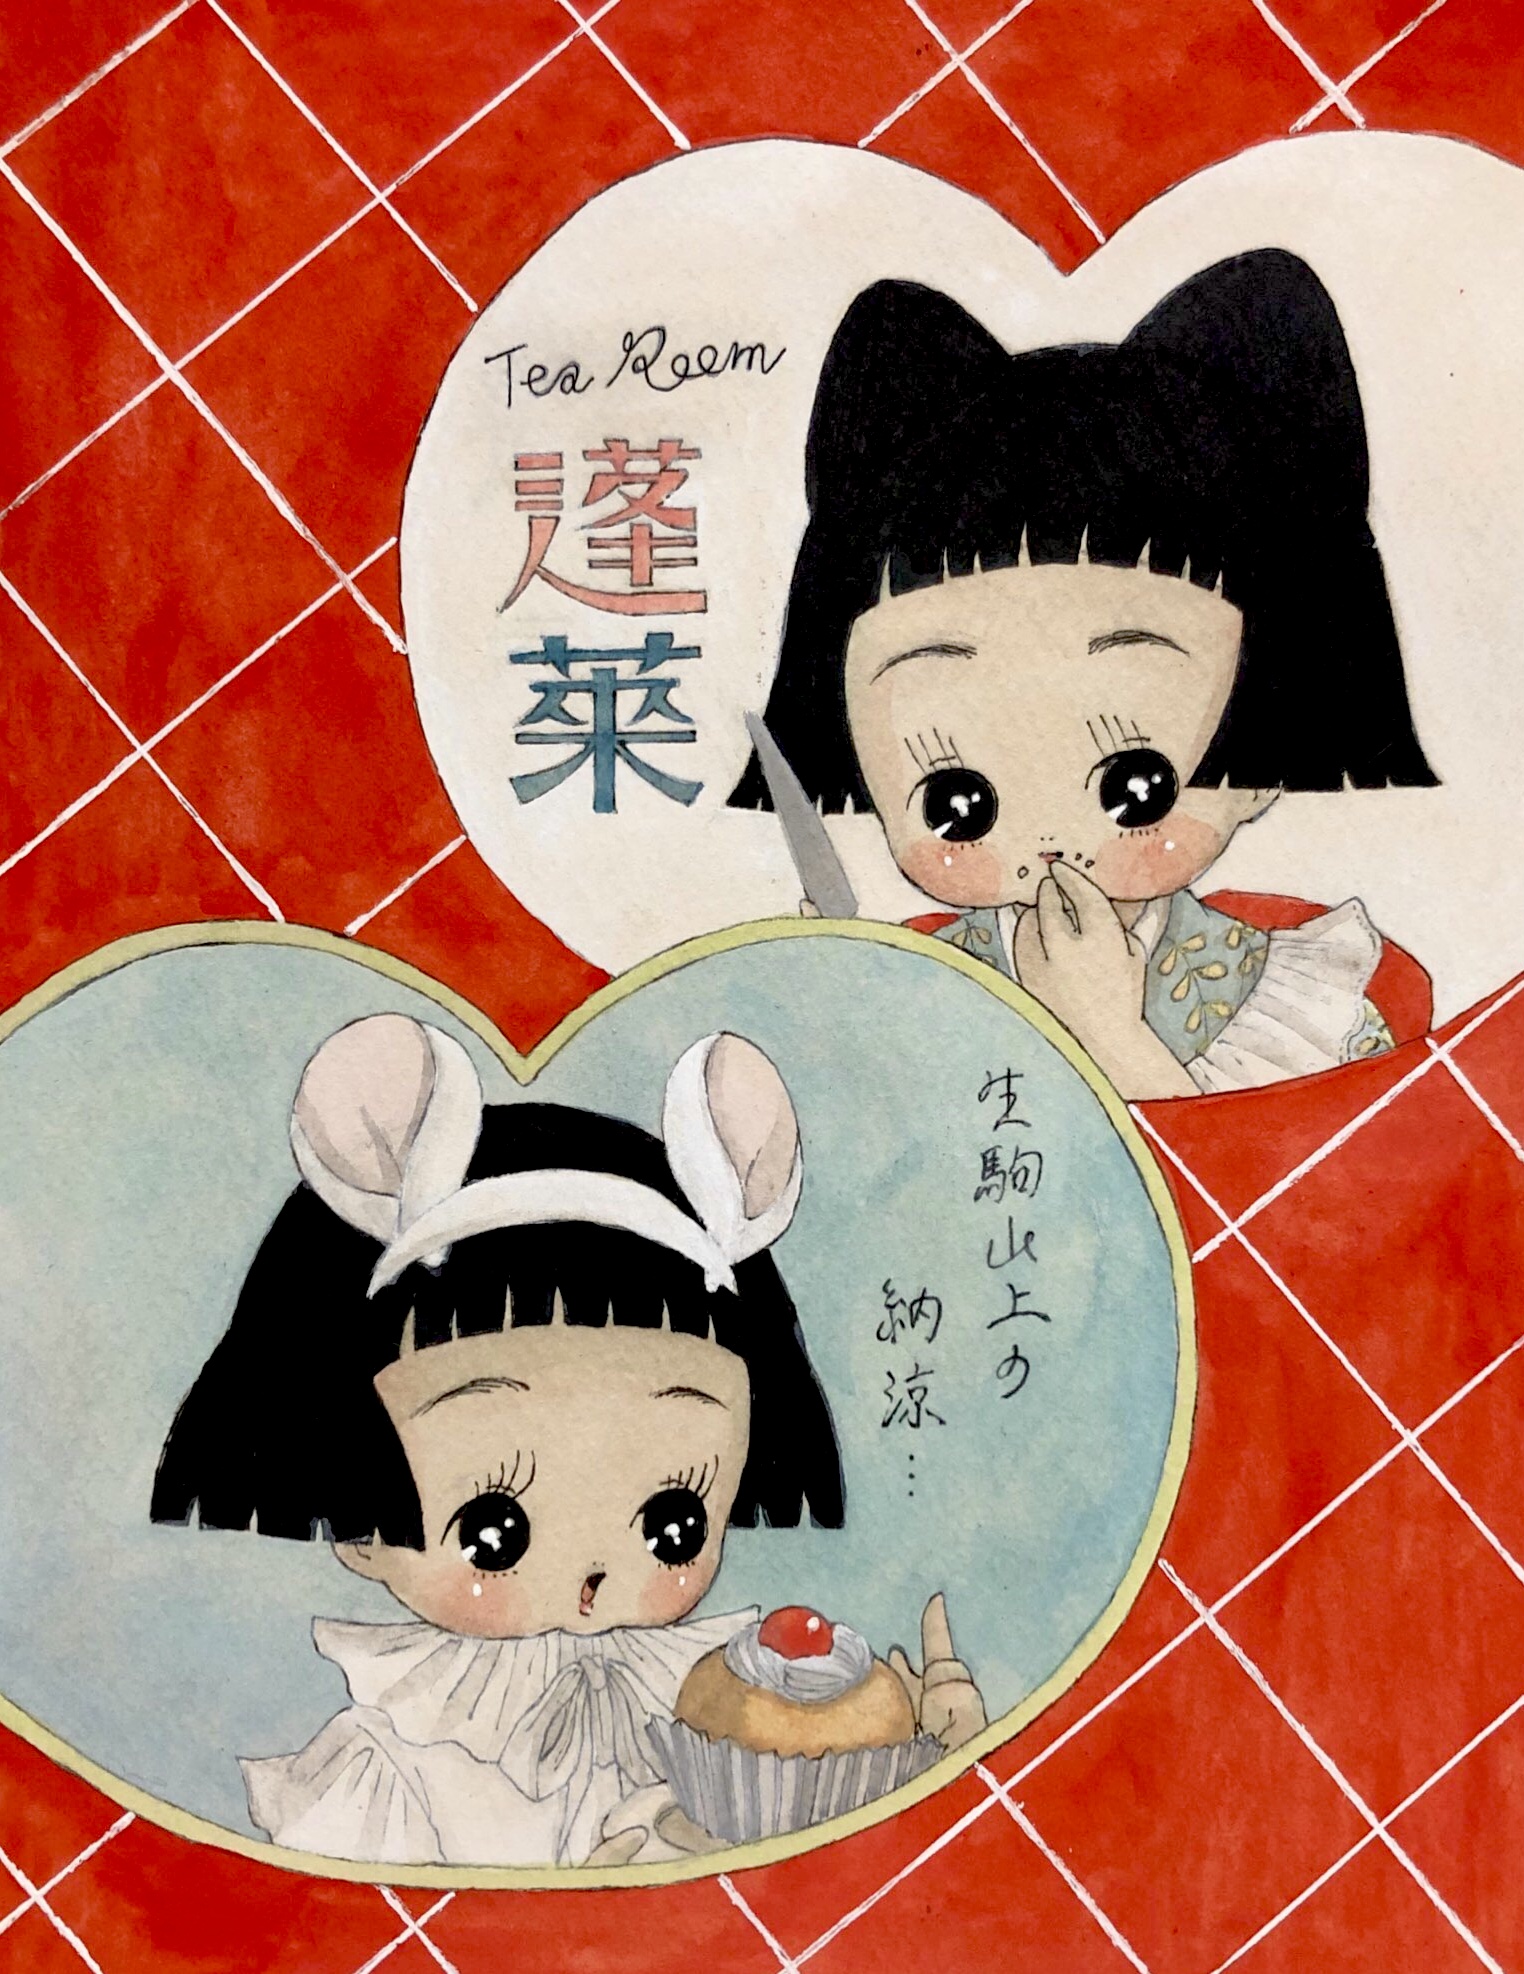 Tea Room
蓬萊
生駒山上の
納涼…